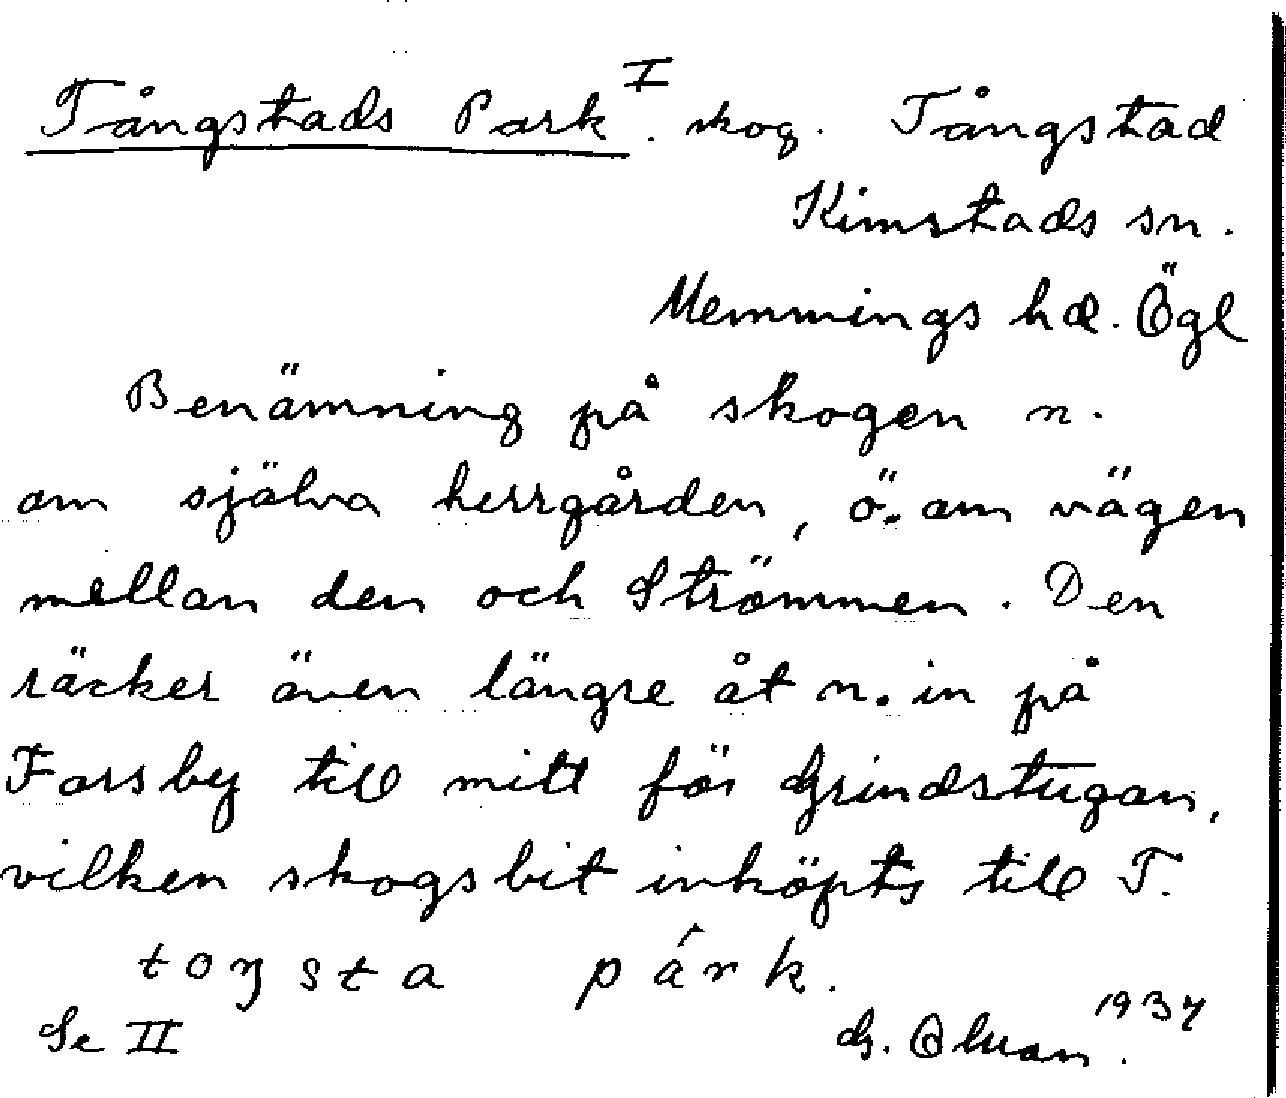 Tångstads Park I. skog. Tångstad
Kimstads sn.
Memmings hd. Ögl
Benämning på skogen n.
om själva herrgården, ö. om vägen
mellan den och Strömmen. Den
räcker även längre åt n. in på
Forsby till mitt för Grindstugan,
vilken skogsbit inköpts till T.
toŋsta párk.
Se II
G. 1937